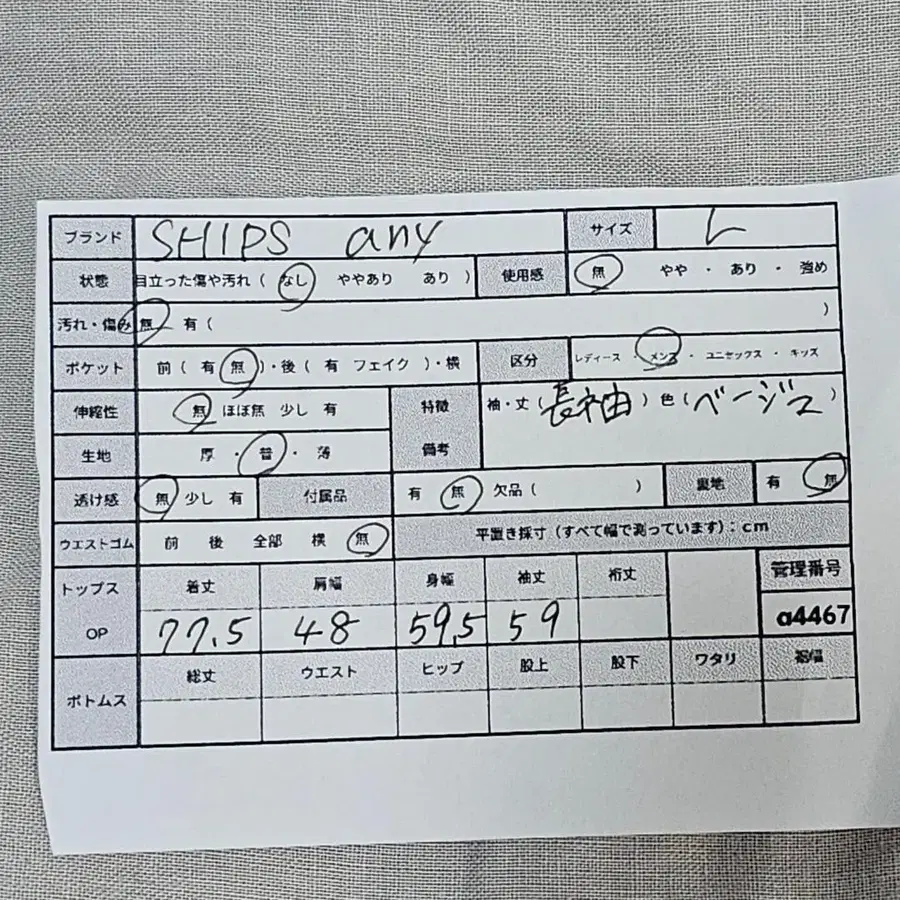 ブランド SHIPS any サイズ L
状態 目立った傷や汚れ ( なし ややあり あり ) 使用感 無 やや ・ あり ・ 強め
汚れ・傷み 無 有 ( )
ポケット 前 ( 有 無 )・後 ( 有 フェイク )・横 区分 レディース ・ メンズ ・ ユニセックス ・ キッズ
伸縮性 無 ほぼ無 少し 有 特徴 袖・丈 ( 長袖 ) 色 ( ベージュ )
生地 厚 ・ 普 ・ 薄 備考
透け感 無 少し 有 付属品 有 無 欠品 ( ) 裏地 有 無
ウエストゴム 前 後 全部 横 無 平置き採寸 (すべて幅で測っています) : cm
トップス 着丈 肩幅 身幅 袖丈 裄丈 管理番号
OP 77.5 48 59.5 59 a4467
ボトムス 総丈 ウエスト ヒップ 股上 股下 ワタリ 裾幅